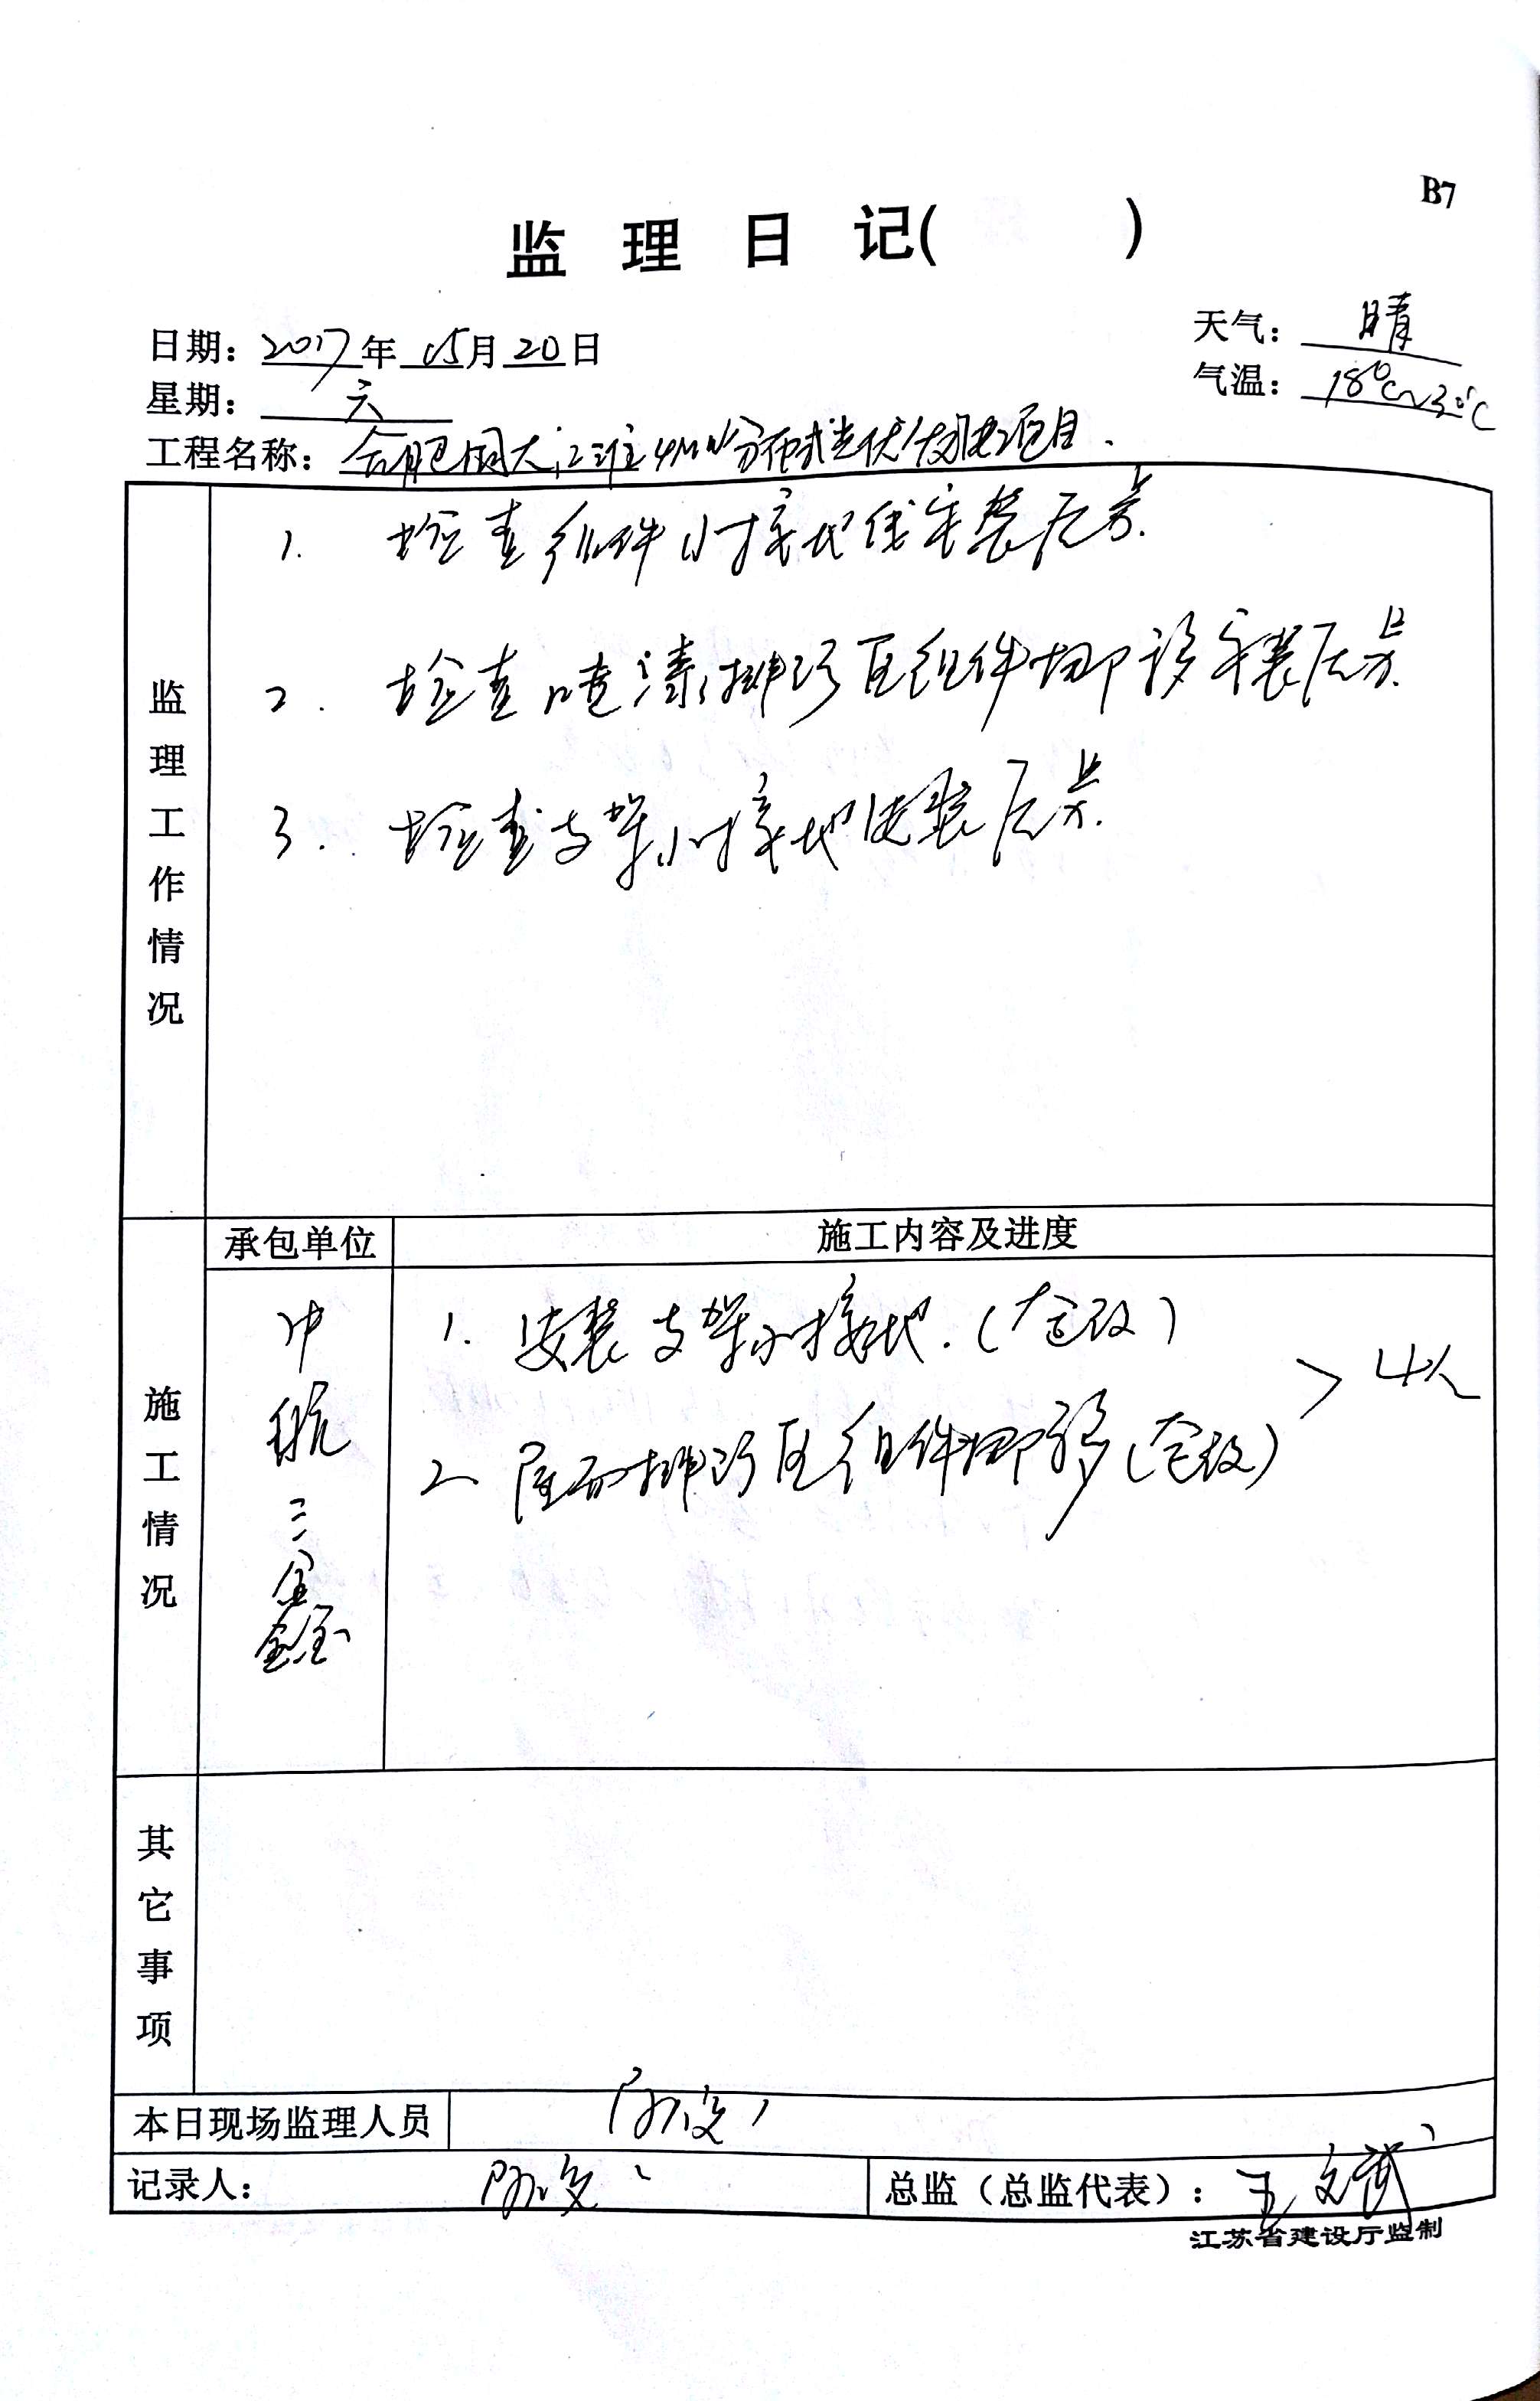 B7
监理日记( )
日期：2017年05月20日
天气：晴
星期：六
气温：18℃~30℃
工程名称：合肥国大江淮4MW分布式光伏发电项目.
监理工作情况
1. 检查组件小接地线安装质量.
2. 检查喷漆排污区组件挪移安装质量.
3. 检查支架小接地安装质量.
施工情况
承包单位
施工内容及进度
中航三鑫
1. 安装支架小接地.(仓改)
2. 屋面排污区组件挪移(仓改)
>4人
其它事项
本日现场监理人员
记录人：
总监（总监代表）：王文斌
江苏省建设厅监制